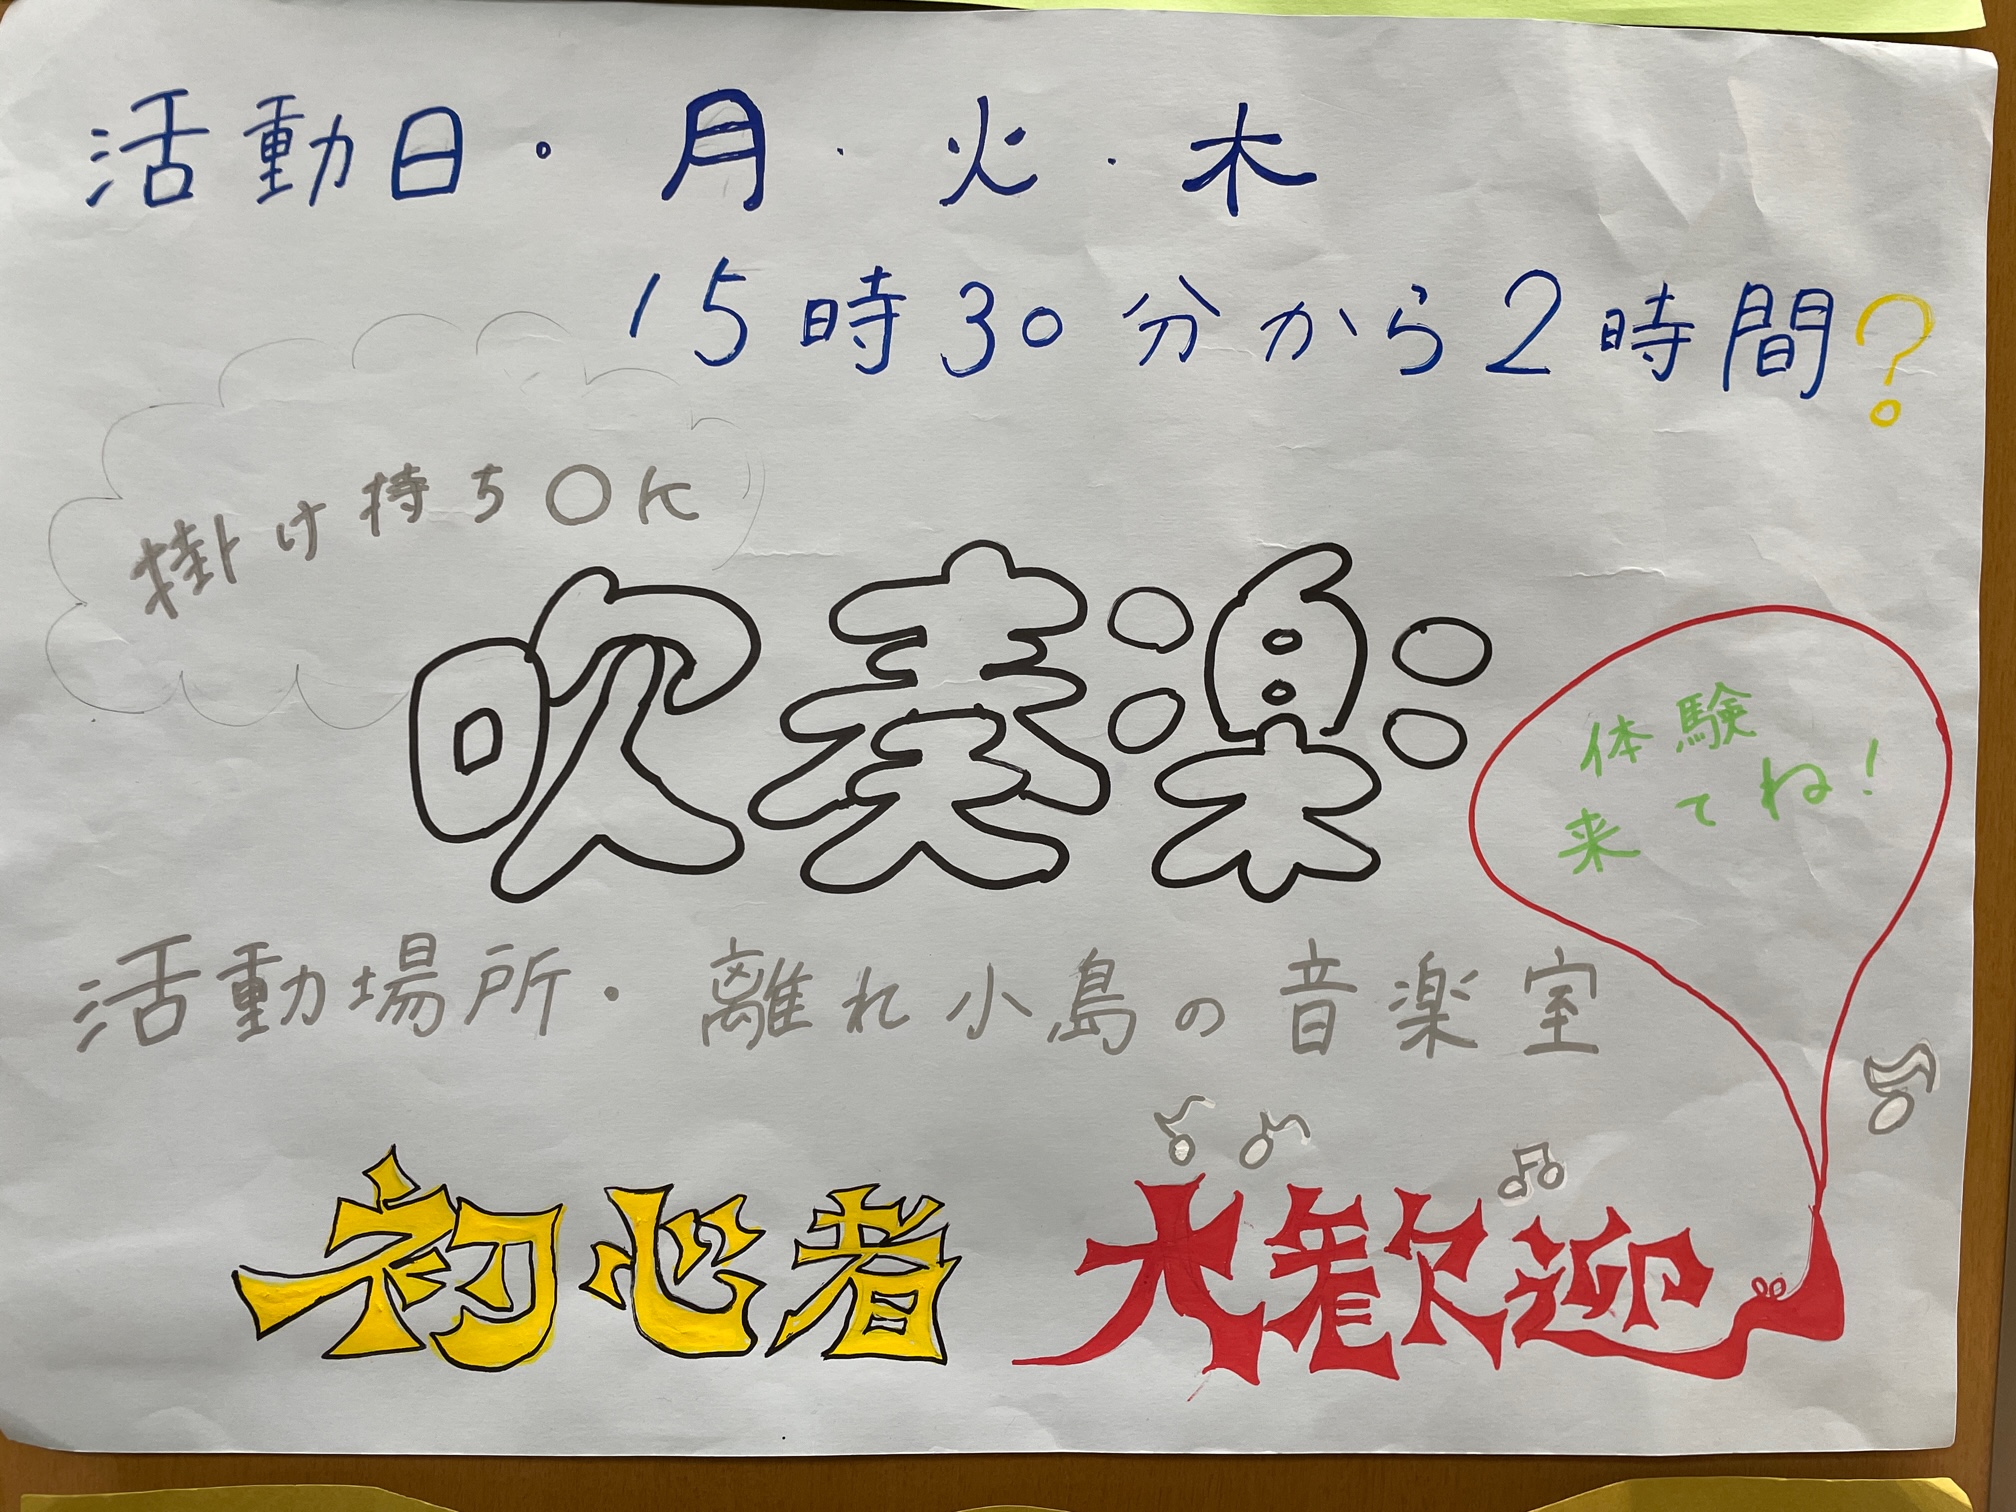 活動日・月・火・木
15時30分から2時間?
掛け持ちOK
吹奏楽
体験
来てね!
活動場所・離れ小島の音楽室
初心者 大歓迎